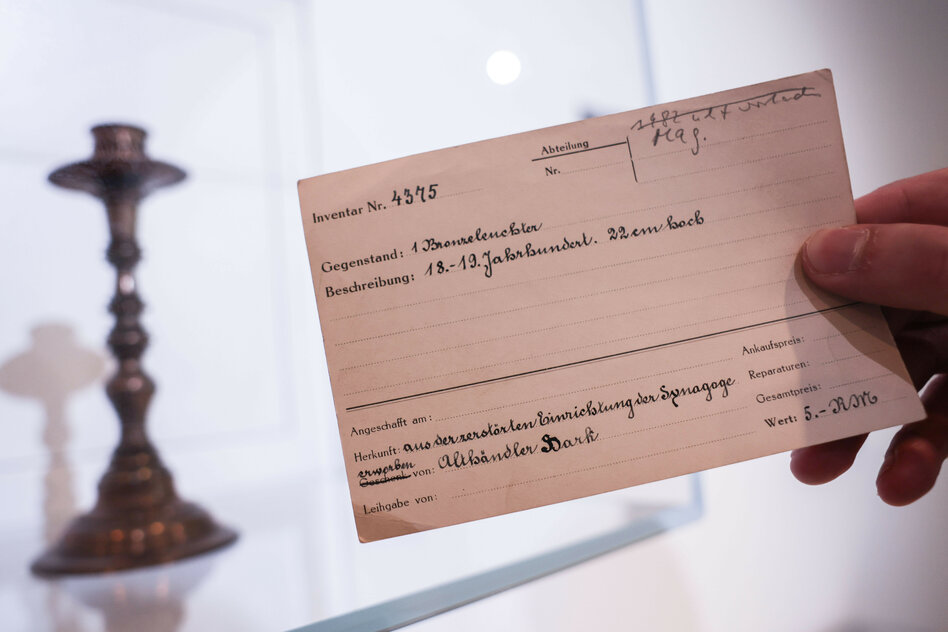 Abteilung
Nr.
Mag.
Inventar Nr. 4375
Gegenstand: 1 Bronzeleuchter
Beschreibung: 18.-19. Jahrhundert. 22 cm hoch
Ankaufspreis:
Reparaturen:
Gesamtpreis:
Wert: 5.- RM
Angeschafft am:
Herkunft: aus der zerstörten Einrichtung der Synagoge
erworben
Geschenk von: Althändler Bark
Leihgabe von: